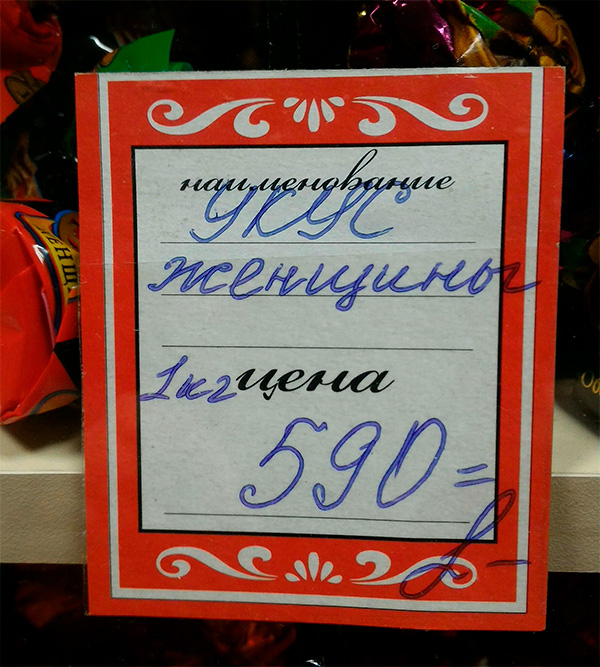 наименование
УКУС
женщины
1кг цена
590=